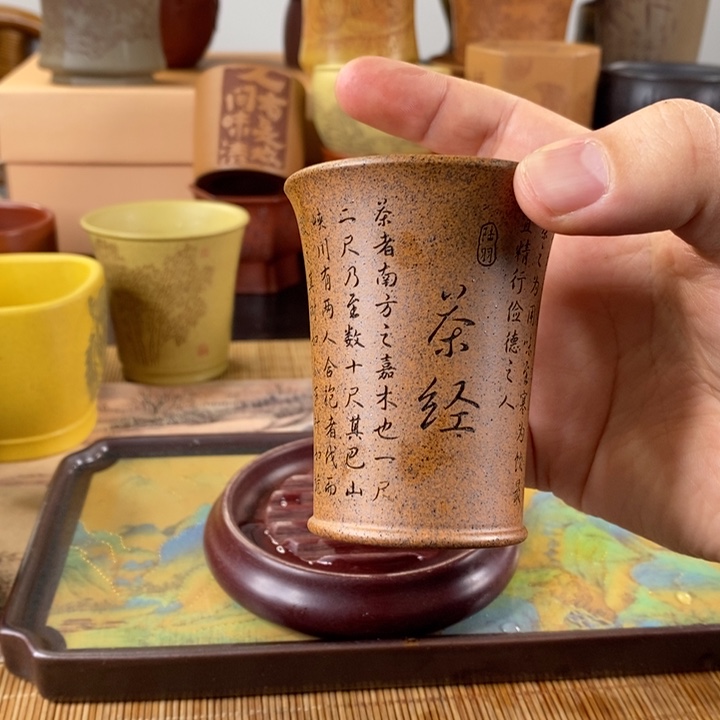 之为用味至寒为饮
精行俭德之人
陆羽
茶经
茶者南方之嘉木也一尺
二尺乃至数十尺其巴山
峡川有两人合抱者伐而